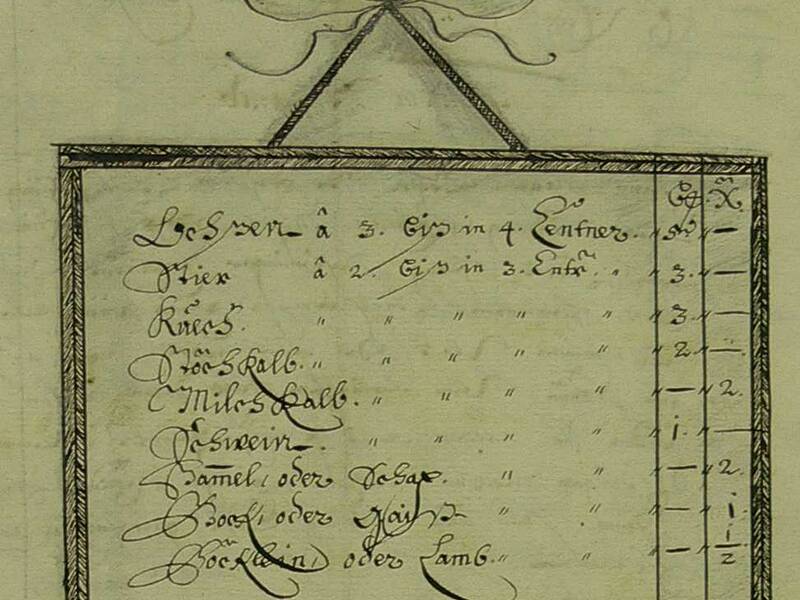 ß. X.
Ochsen à 3. biß in 4. Centner. " — "
Stier à 2. biß in 3. Centr. " " 3. " —
Kuech. " " " " " " 3. " —
Stöchkalb. " " " " " " 2 " —.
Milch Kalb. " " " " " — " 2.
Schwein. " " " " " 1. " —
Ham̄el, oder Schaf. " " " — " 2.
Bock, oder Gaiß " " " — " 1
Böcklein, oder Lamb. " " " — " 1/2